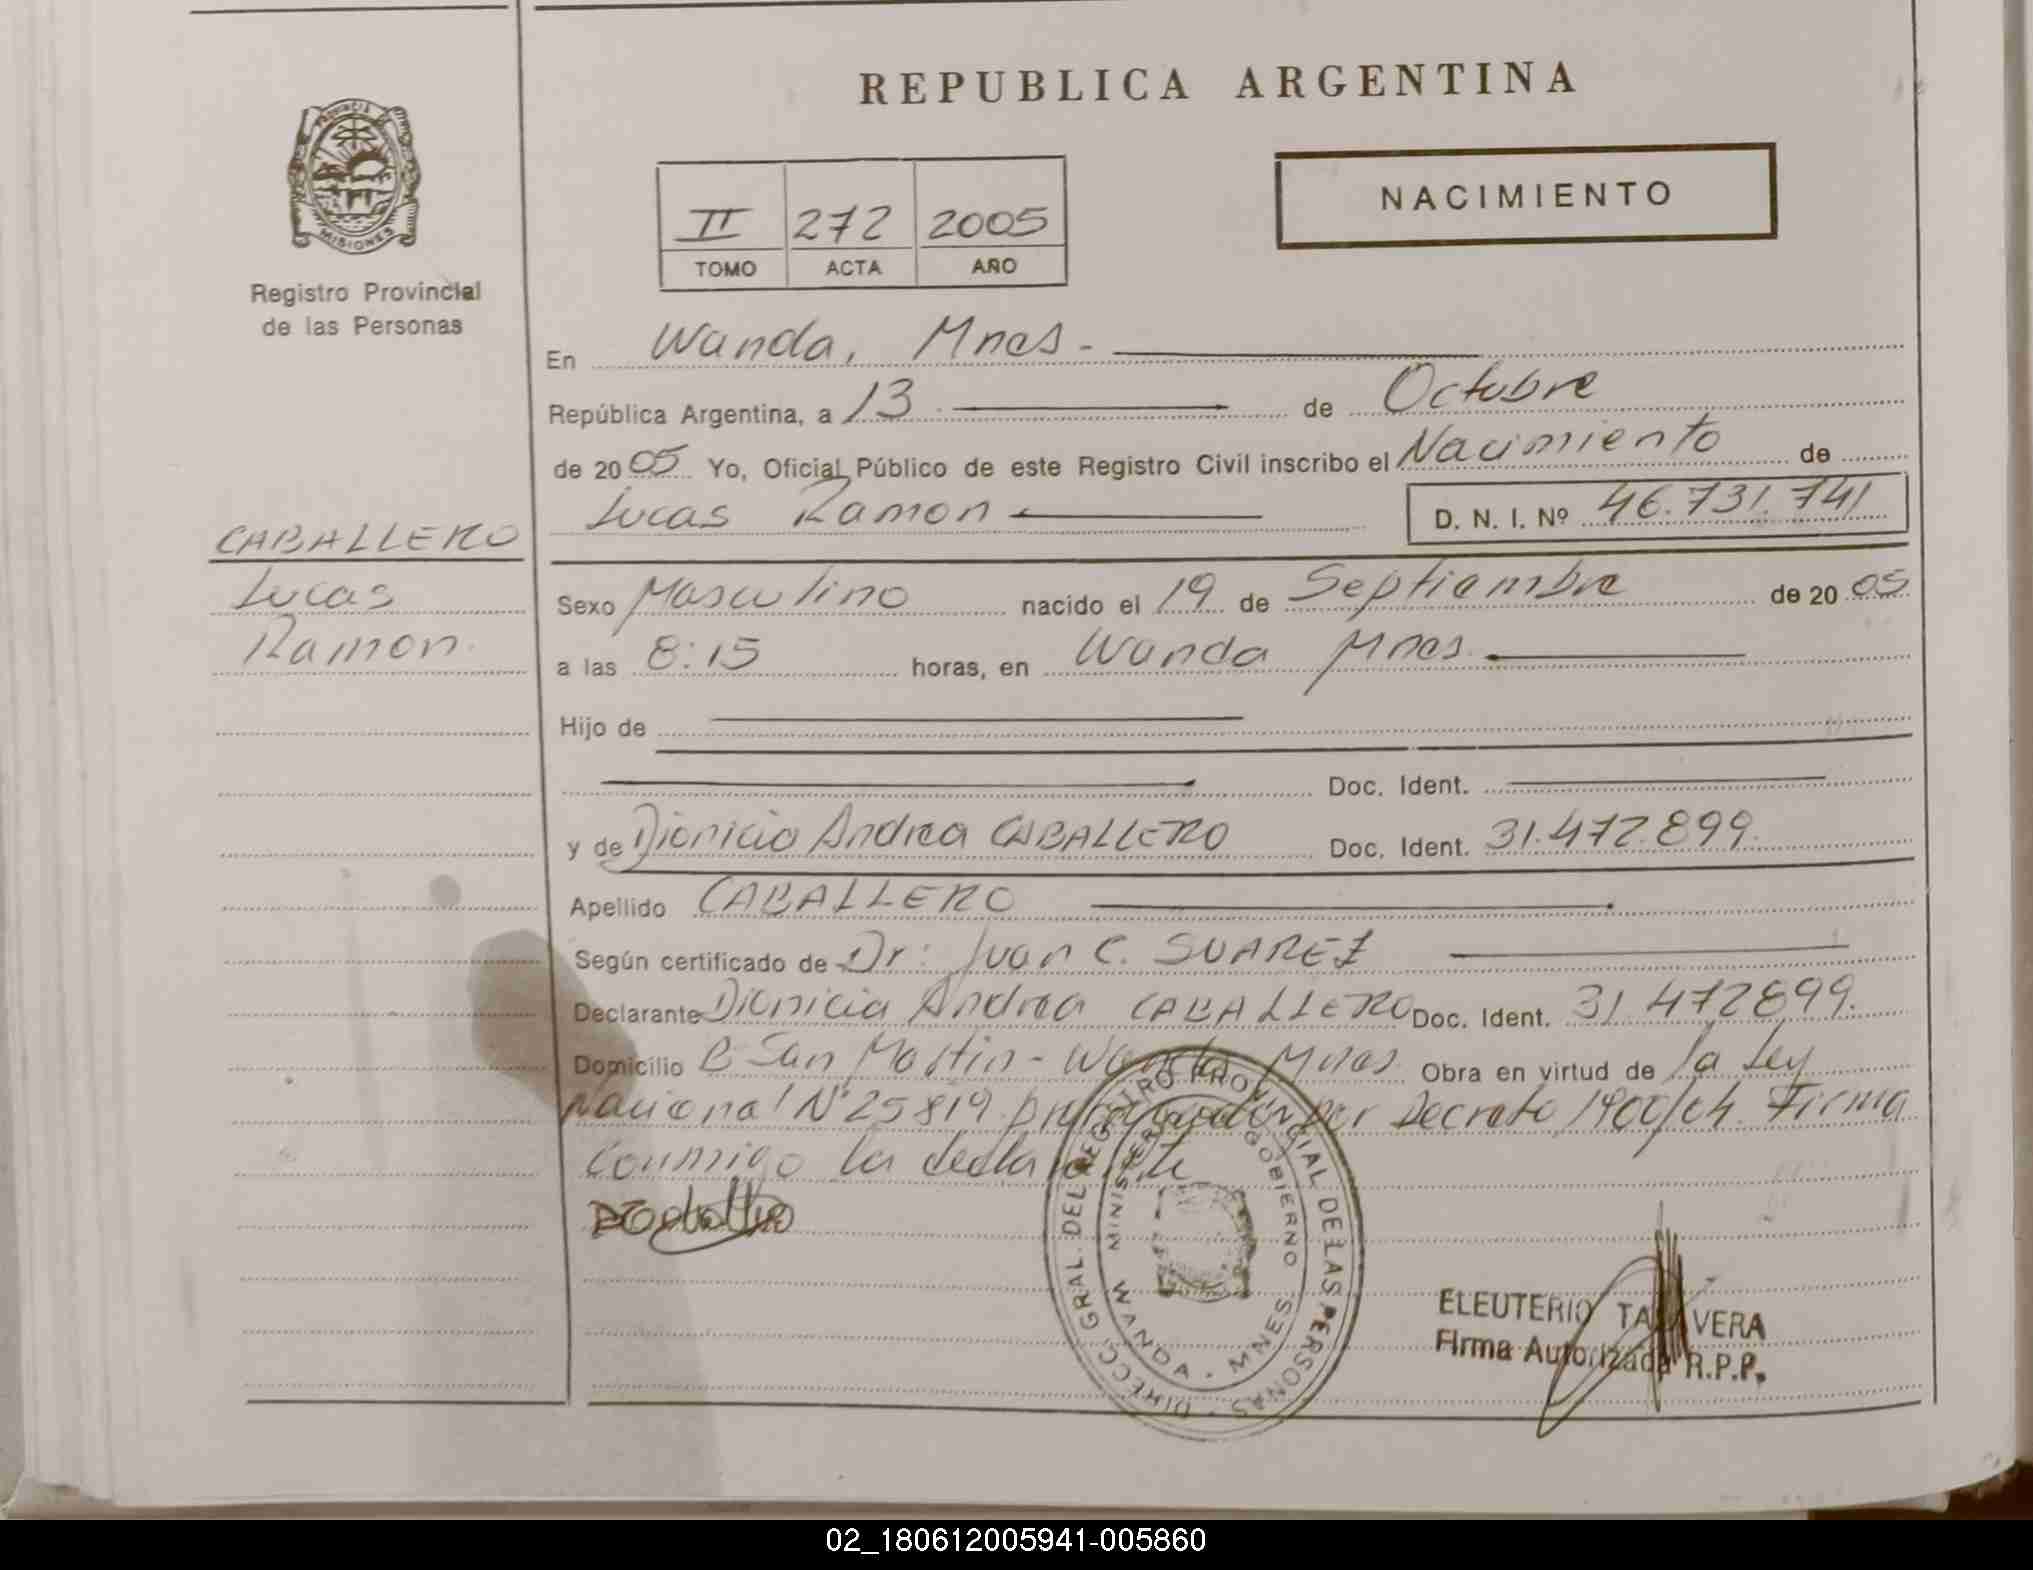 REPUBLICA ARGENTINA
PROVINCIA DE
MISIONES
Registro Provincial
de las Personas
NACIMIENTO
II 272 2005
TOMO ACTA AÑO
En Wanda, Mnes -
República Argentina, a 13 de Octubre
de 20 05 Yo, Oficial Público de este Registro Civil inscribo el Nacimiento de
Lucas Ramon D. N. I. Nº 46.731.741
CABALLERO
Lucas
Ramon.
Sexo Masculino nacido el 19 de Septiembre de 20 05
a las 8:15 horas, en Wanda Mnes.
Hijo de
Doc. Ident.
y de Dionicia Andrea CABALLERO Doc. Ident. 31.472.899.
Apellido CABALLERO
Según certificado de Dr: Juan C. SUAREZ
Declarante Dionicia Andrea CABALLERO Doc. Ident. 31.472899.
Domicilio B San Martin - Wanda Mnes. Obra en virtud de la Ley
Nacional Nº 25819 por Decreto 1900/04. Firma
Conmigo la declarante
DIRECC. GRAL. DEL REGISTRO PROVINCIAL DE LAS PERSONAS
MINISTERIO GOBIERNO
WANDA - MNES.
ELEUTERIO TALAVERA
Firma Autorizada R.P.P.
02_180612005941-005860